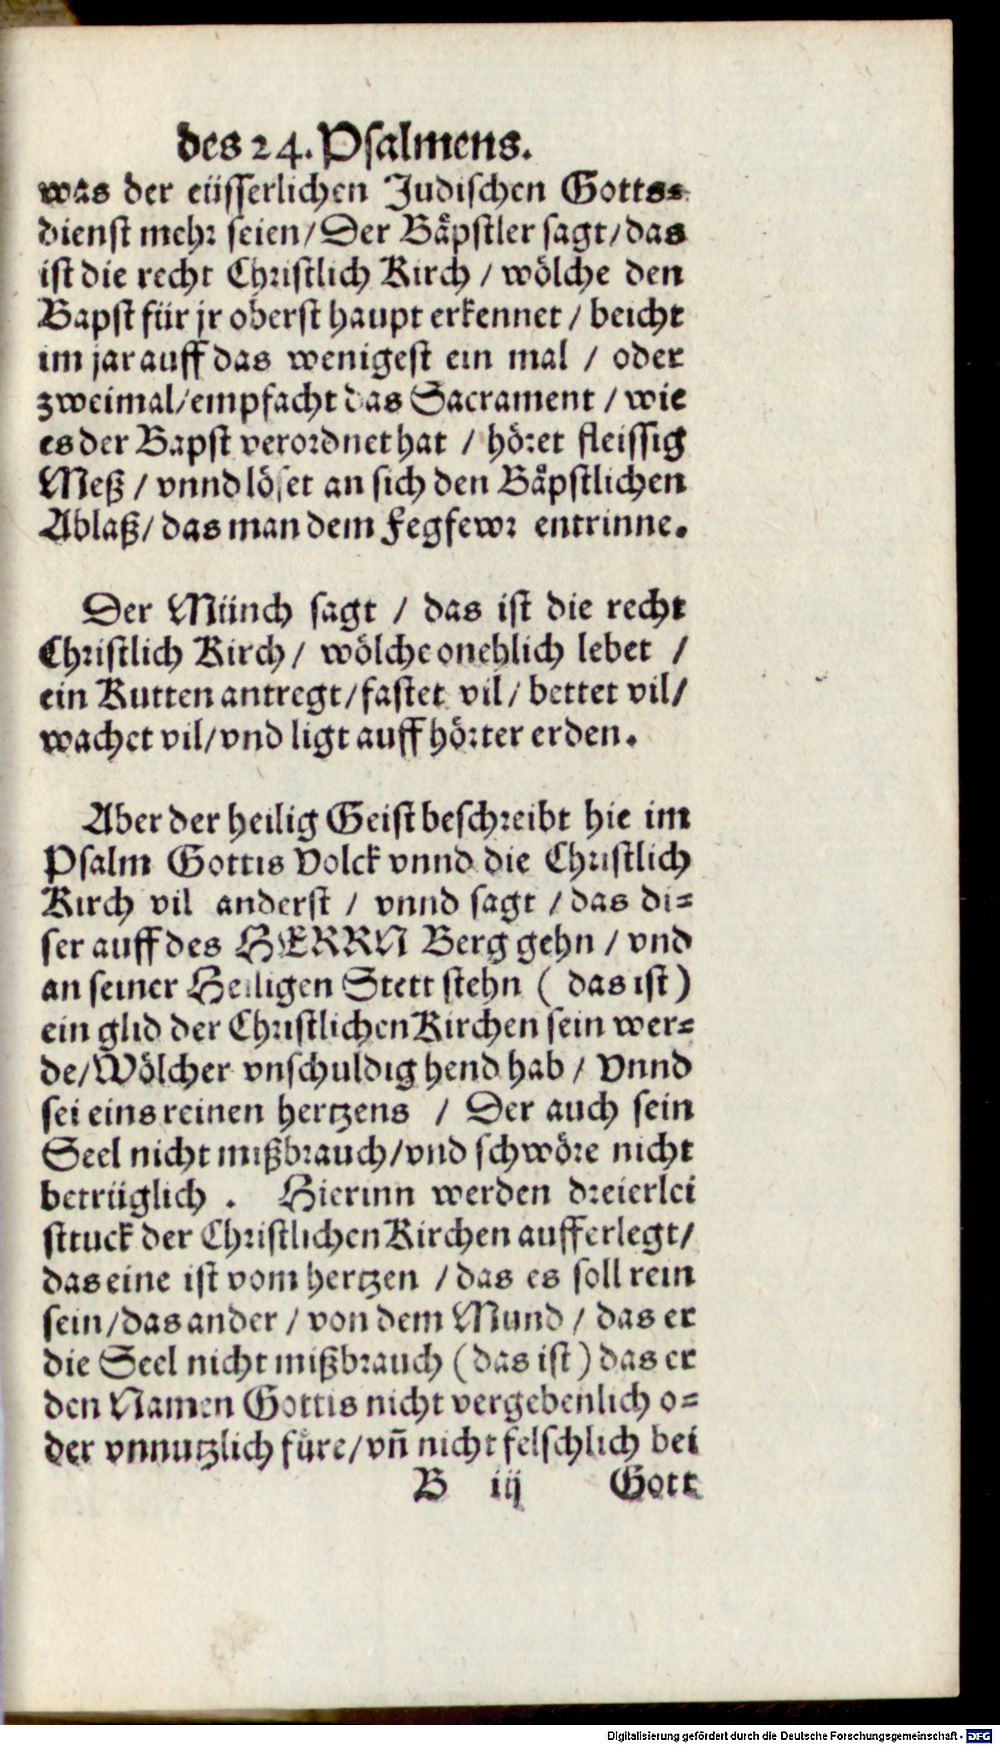 des 24. Psalmens.
was der eüsserlichen Judischen Gotts-
dienst mehr seien / Der Bäpstler sagt / das
ist die recht Christlich Kirch / wölche den
Bapst für jr oberst haupt erkennet / beicht
im jar auff das wenigest ein mal / oder
zweimal / empfacht das Sacrament / wie
es der Bapst verordnet hat / höret fleissig
Meß / vnnd löset an sich den Bäpstlichen
Ablaß / das man dem Fegfewr entrinne.
Der Münch sagt / das ist die recht
Christlich Kirch / wölche onehlich lebet /
ein Kutten antregt / fastet vil / bettet vil /
wachet vil / vnd ligt auff hörter erden.
Aber der heilig Geist beschreibt hie im
Psalm Gottis Volck vnnd die Christlich
Kirch vil anderst / vnnd sagt / das di-
ser auff des HERRN Berg gehn / vnd
an seiner Heiligen Stett stehn ( das ist )
ein glid der Christlichen Kirchen sein wer-
de / Wölcher vnschuldig hend hab / Vnnd
sei eins reinen hertzens / Der auch sein
Seel nicht mißbrauch / vnd schwöre nicht
betrüglich . Hierinn werden dreierlei
sttuck der Christlichen Kirchen aufferlegt /
das eine ist vom hertzen / das es soll rein
sein / das ander / von dem Mund / das er
die Seel nicht mißbrauch ( das ist ) das er
den Namen Gottis nicht vergebenlich o-
der vnnutzlich füre / vñ nicht felschlich bei
B iij Gott
Digitalisierung gefördert durch die Deutsche Forschungsgemeinschaft - DFG